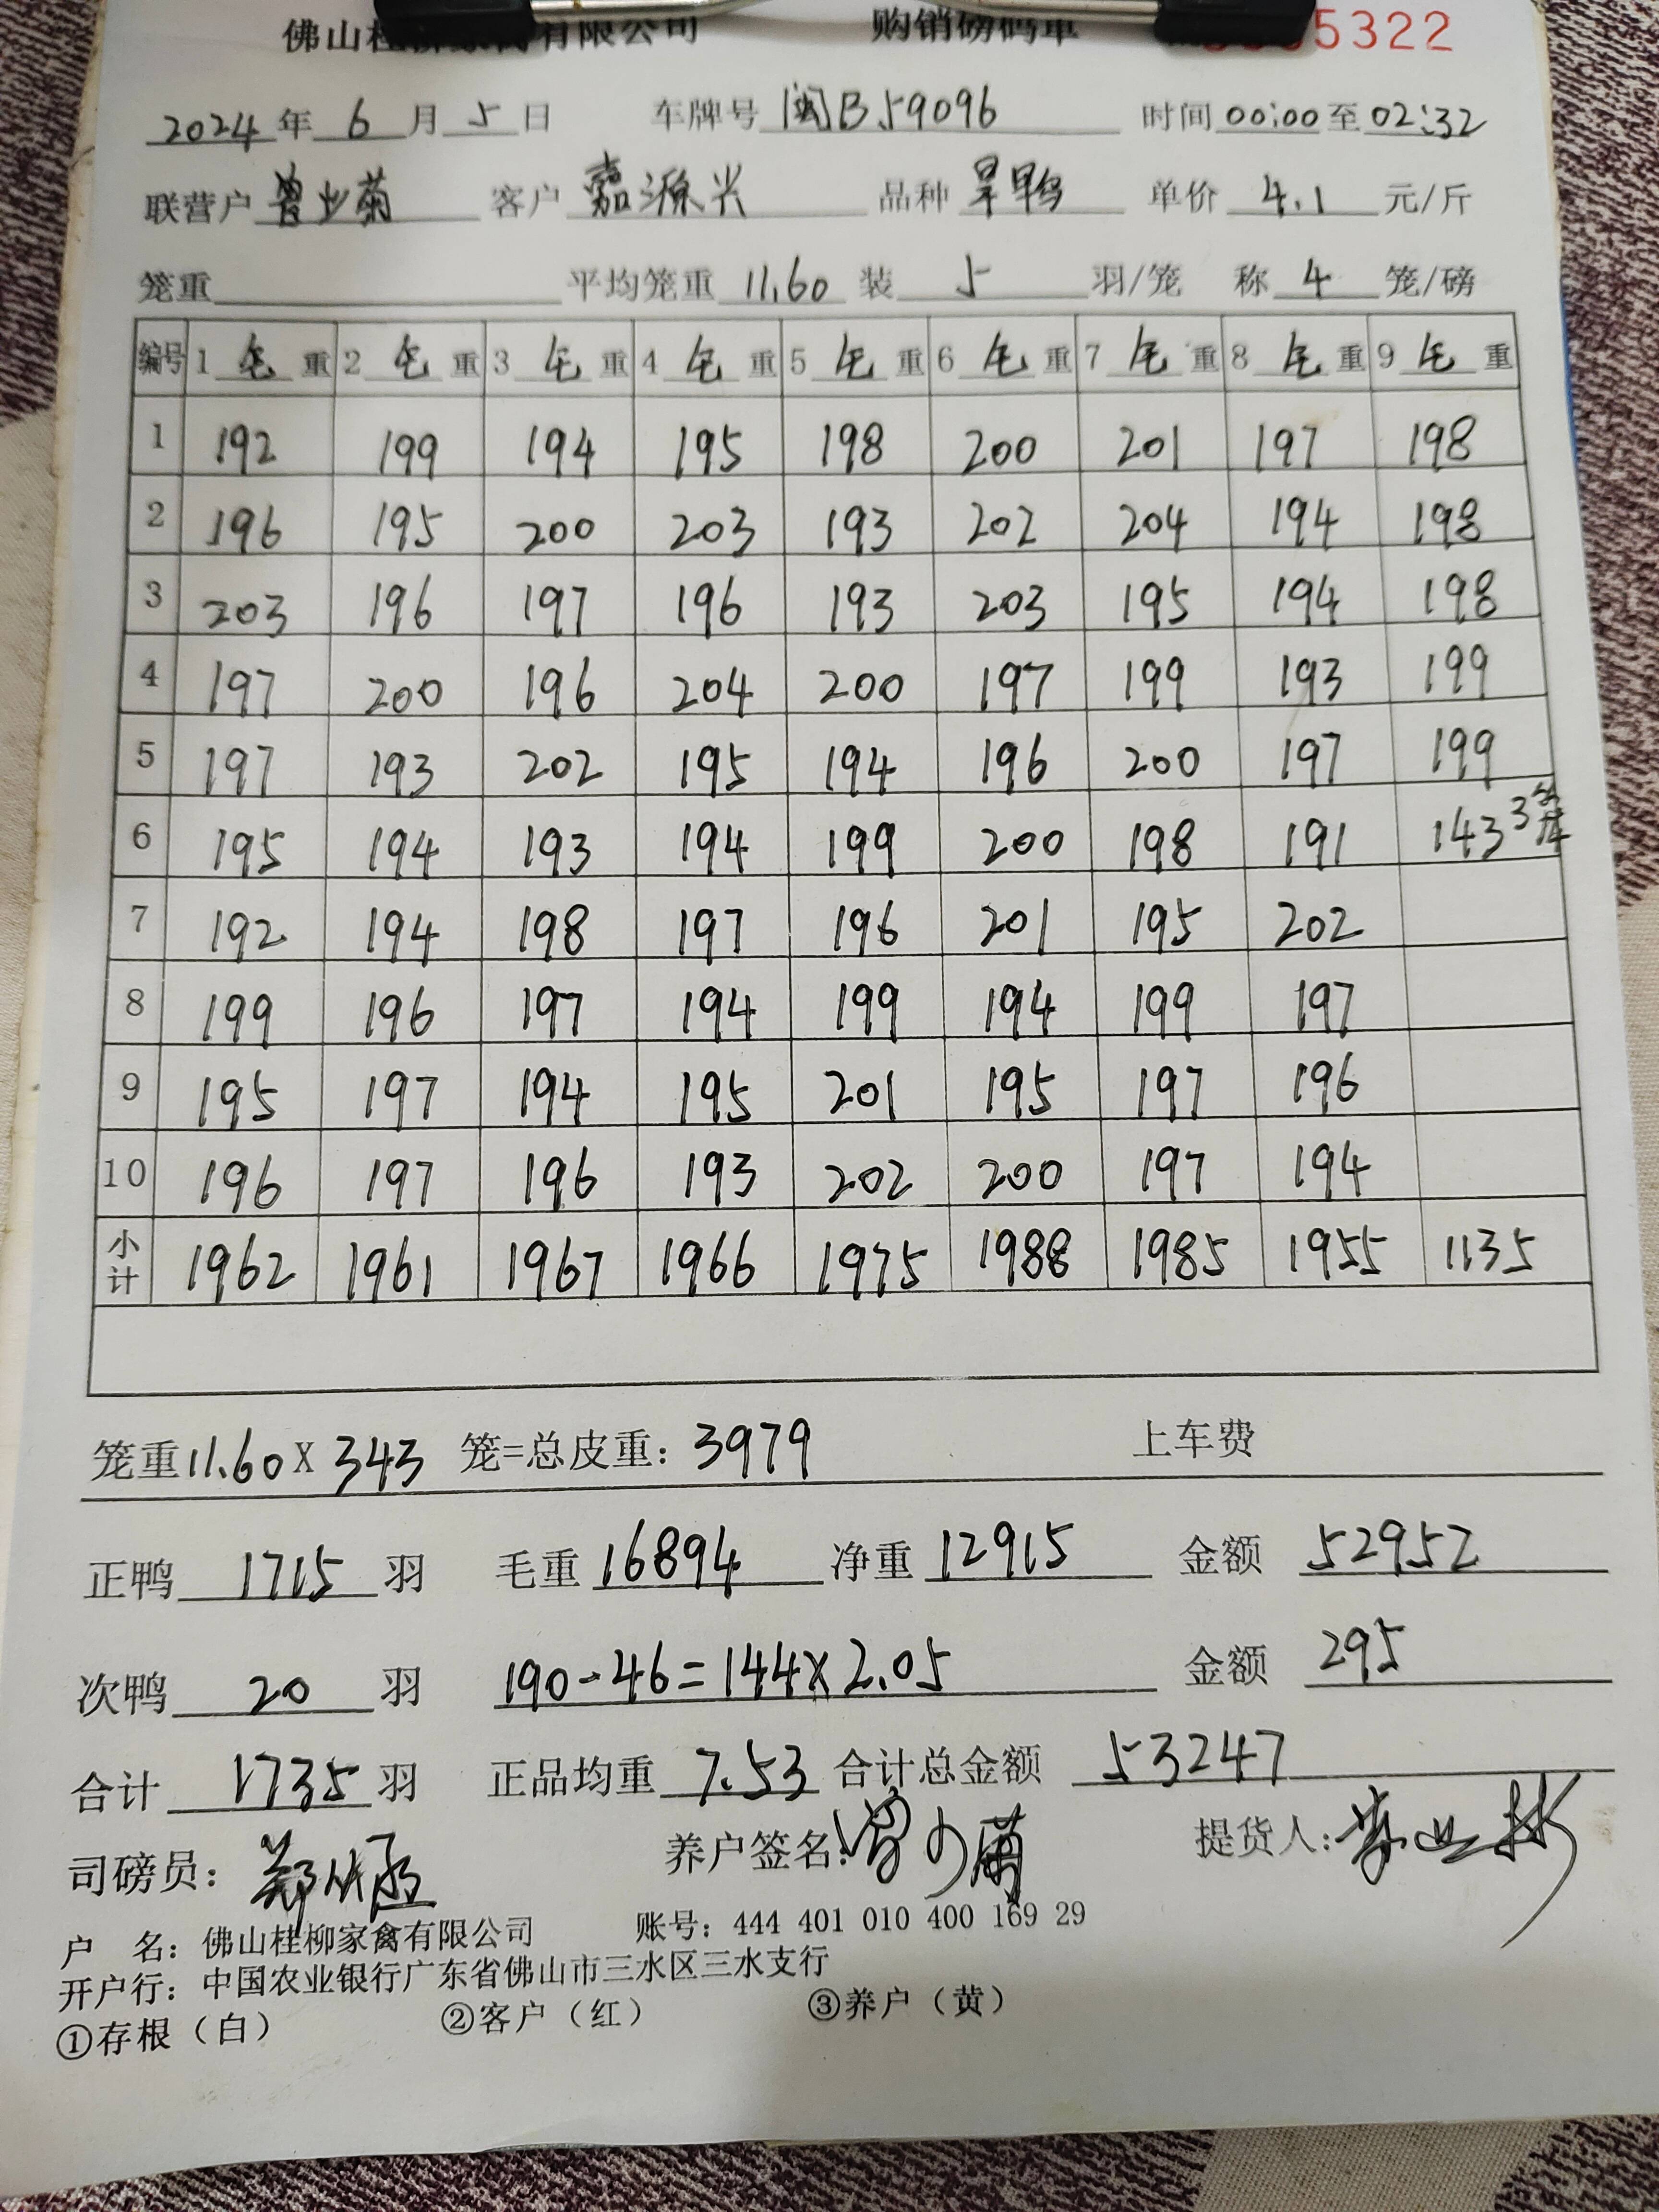 佛山桂柳家禽有限公司 购销磅码单 5322
2024年6月5日 车牌号闽B59096 时间00:00至02:32
联营户曾少菊 客户嘉源兴 品种旱鸭 单价4.1元/斤
笼重 平均笼重11.60装5羽/笼 称4笼/磅
编号 1毛重 2毛重 3毛重 4毛重 5毛重 6毛重 7毛重 8毛重 9毛重
1 192 199 194 195 198 200 201 197 198
2 196 195 200 203 193 202 204 194 198
3 203 196 197 196 193 203 195 194 198
4 197 200 196 204 200 197 199 193 199
5 197 193 202 195 194 196 200 197 199
6 195 194 193 194 199 200 198 191 143 3笼
7 192 194 198 197 196 201 195 202
8 199 196 197 194 199 194 199 197
9 195 197 194 195 201 195 197 196
10 196 197 196 193 202 200 197 194
小计 1962 1961 1967 1966 1975 1988 1985 1955 1135
笼重11.60X343笼=总皮重:3979 上车费
正鸭1715羽 毛重16894 净重12915 金额52952
次鸭20羽 190-46=144×2.05 金额295
合计1735羽 正品均重7.53 合计总金额53247
司磅员: 养户签名:曾少菊 提货人:
户 名:佛山桂柳家禽有限公司 账号:444 401 010 400 169 29
开户行:中国农业银行广东省佛山市三水区三水支行
①存根（白） ②客户（红） ③养户（黄）